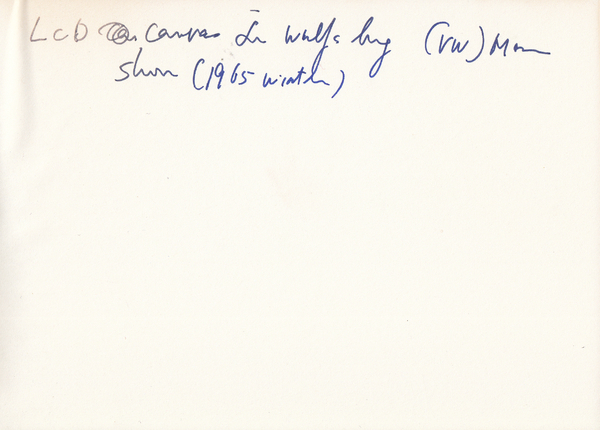 LCD on canvas In Wulfsburg (VW) Mom
Show (1965 winter)